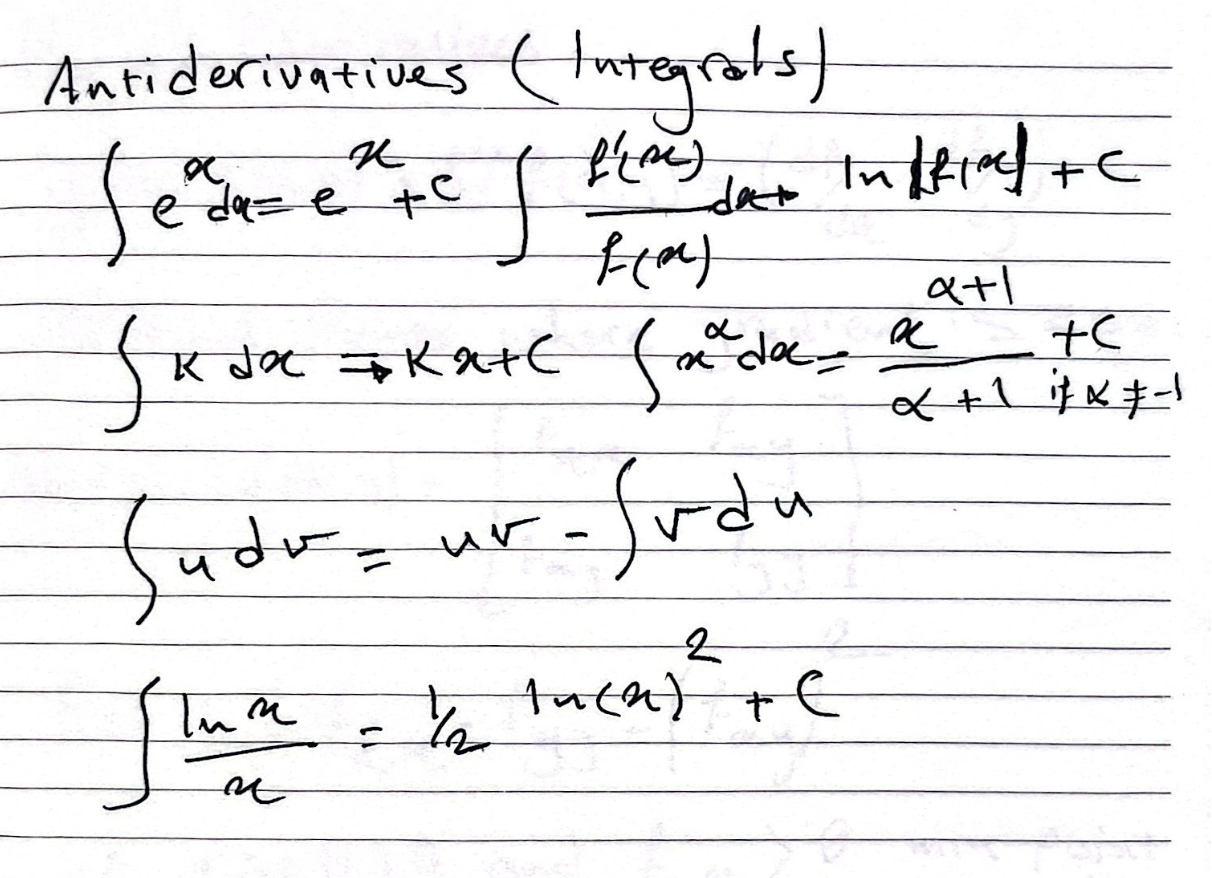 Antiderivatives (Integrals)
∫ e^x dx = e^x + C ∫ f'(x)/f(x) dx = ln |f(x)| + C
∫ K dx = Kx + C ∫ x^α dx = x^(α+1)/(α+1) + C if α ≠ -1
∫ u dv = uv - ∫ v du
∫ ln x / x = 1/2 ln(x)^2 + C